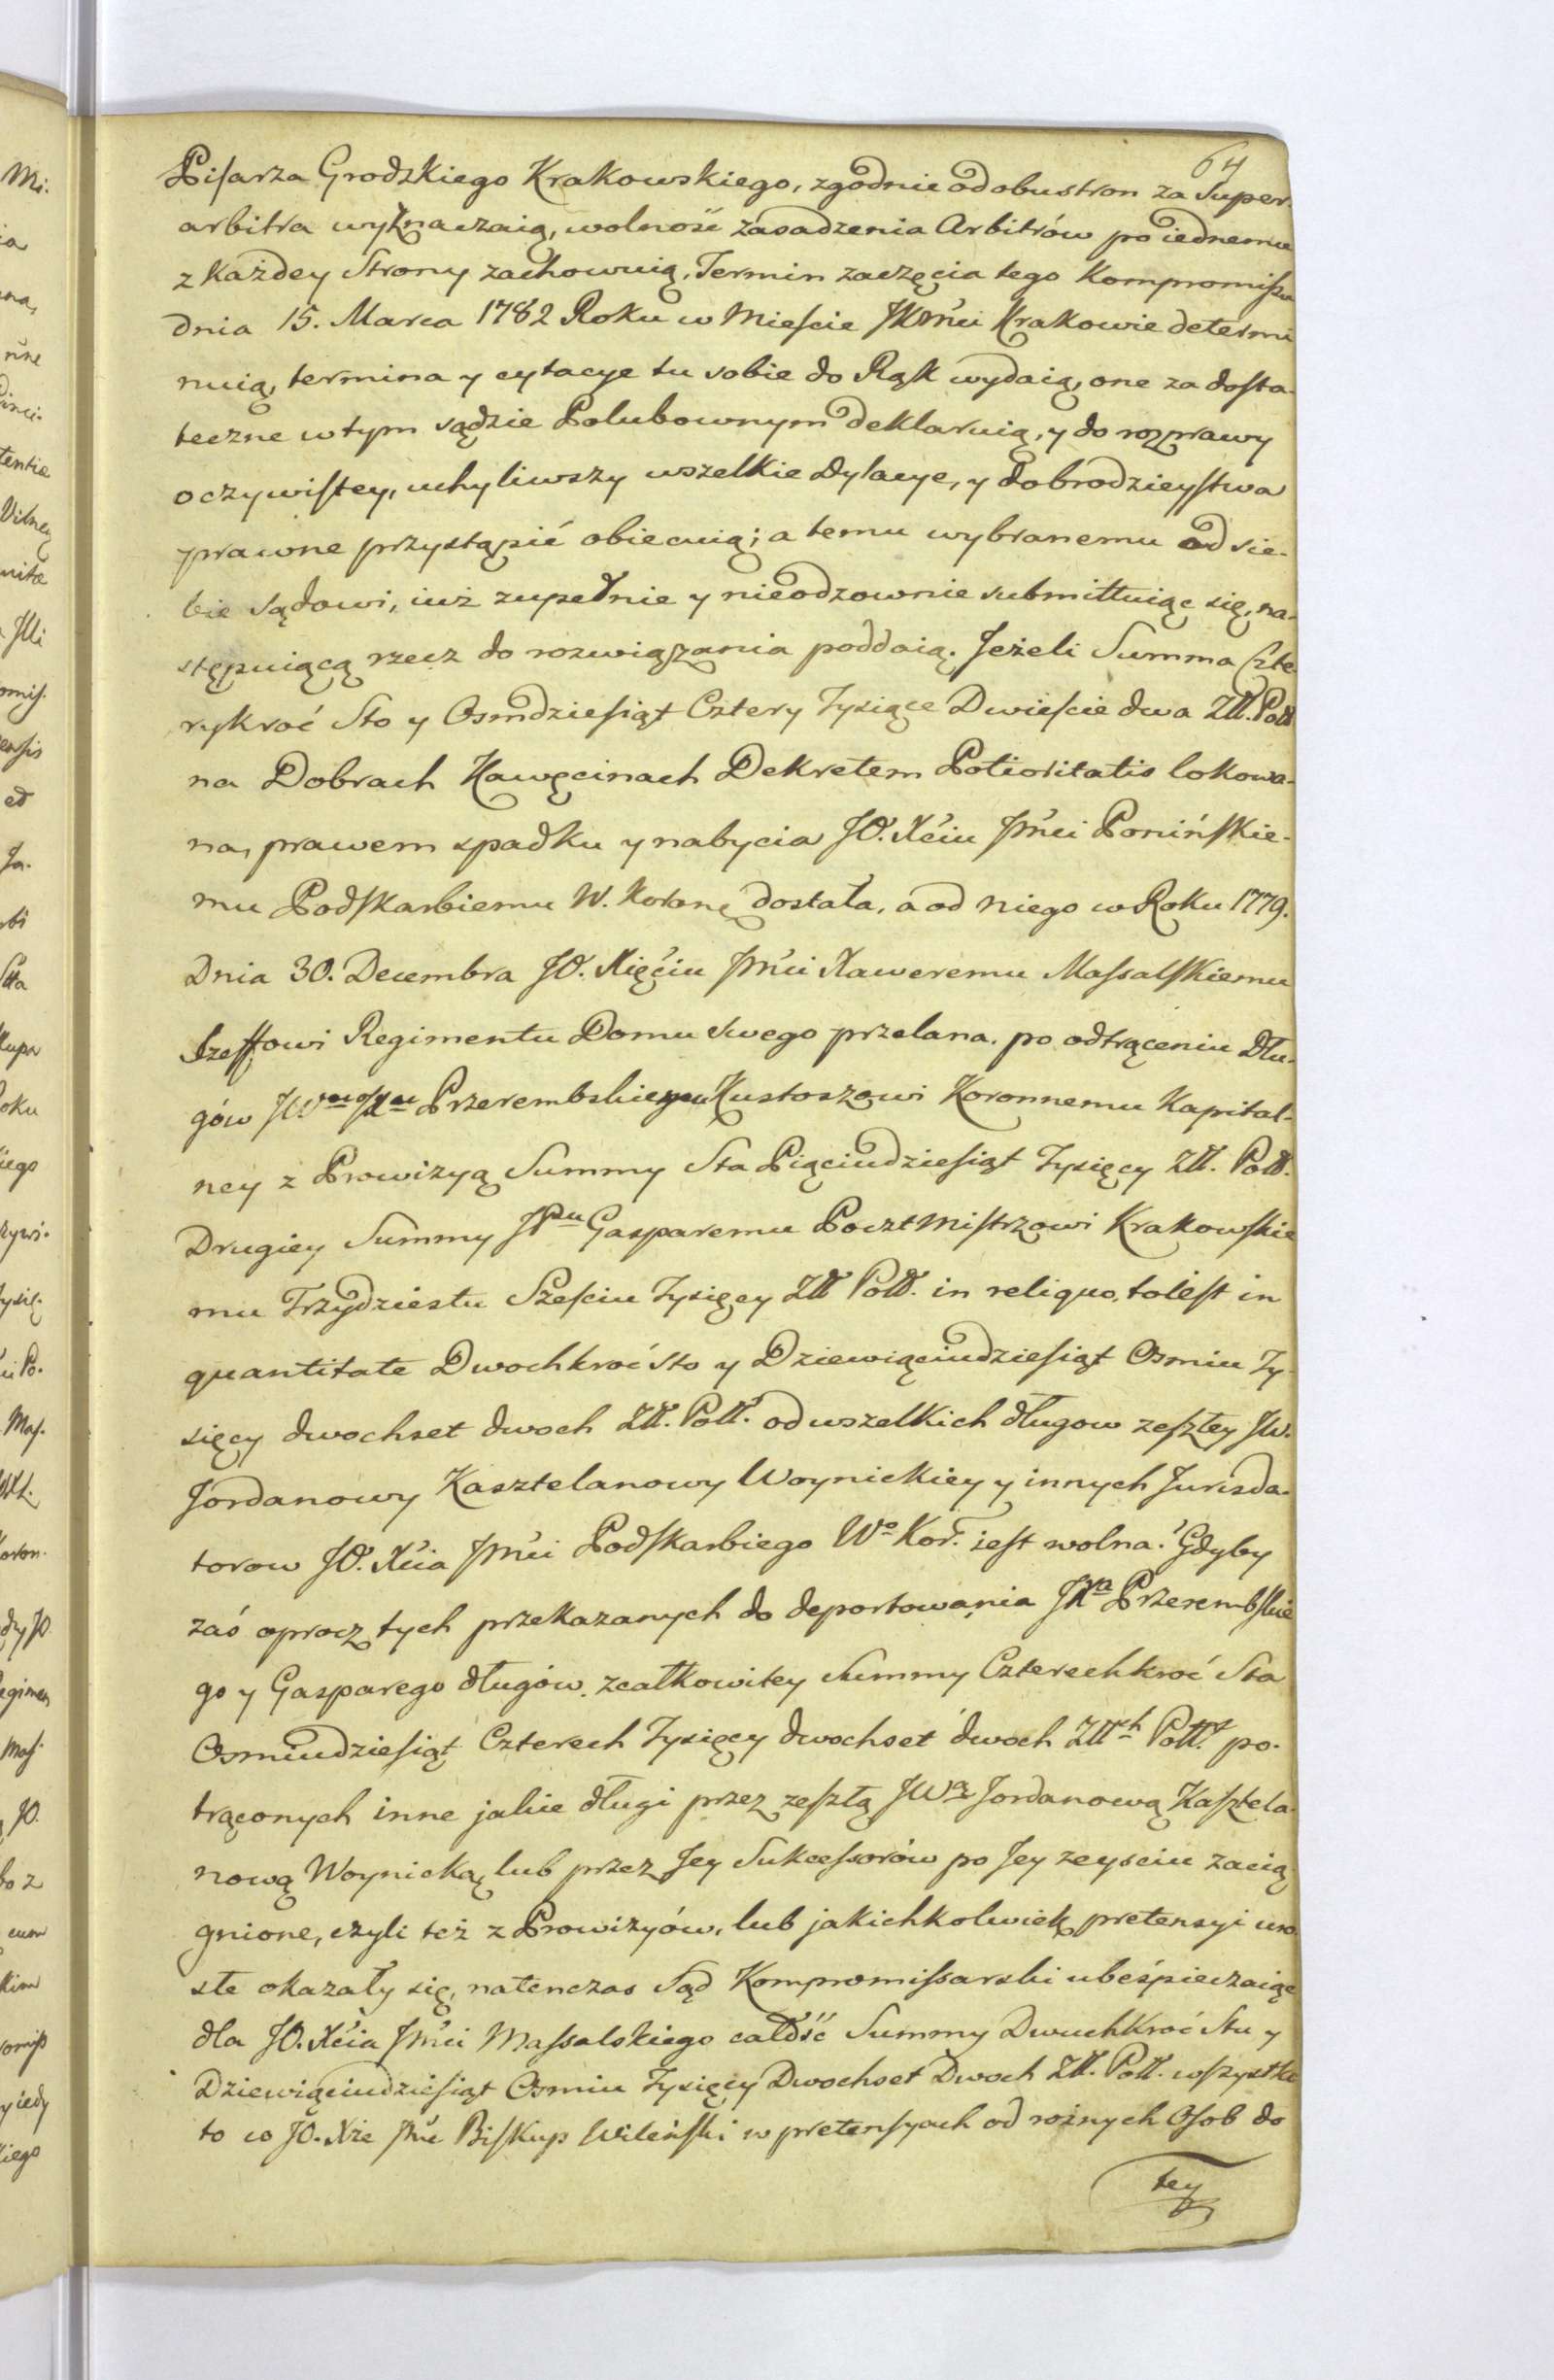 64
Pisarza Grodzkiego Krakowskiego, zgodnie od obustron za Super
arbitra wyznaczaią, wolność zasadzenia Arbitrów po iednemu
z każdey Strony zachowuią, Termin zaczęcia tego Kompromissu
dnia 15. Marca 1782 Roku w Mieście JKMći Krakowie determi
nuią, termina y cytacye tu sobie do Rąk wydaią, one za dosta-
teczne w tym sądzie Polubownym deklaruią, y do rozprawy
oczywistey, uchyliwszy wszelkie Dylacye, y dobrodzieystwa
prawne przystąpić obiecuią; a temu wybranemu od sie-
bie sądowi, iuż zupełnie y nieodzownie submittuiąc się, na-
stępuiącą rzecz do rozwiązania poddaią. Jeżeli Summa Czte-
rykroć Sto y Osmdziesiąt Cztery Tysiące Dwieście dwa Złł. Poll
na Dobrach Kawęcinach Dekretem Potioritatis lokowa-
na, prawem spadku y nabycia JO. Xciu Jmći Ponińskie-
mu Podskarbiemu W. Koronę dostała, a od niego w Roku 1779.
Dnia 30. Decembra JO. Xięciu Jmći Xaweremu Massalskiemu
Szeffowi Regimentu Domu swego przelana. po odtrąceniu Dłu-
gów Przerembskiemu Kustoszowi Koronnemu Kapital-
ney z Prowizyą Summy Sta Pięciudziesiąt Tysięcy Złł. Poll.
Drugiey Summy JPu Gasparemu Pocztmistrzowi Krakowskie
mu Trzydziestu Sześciu Tysięcy Złł Poll. in reliquo, toiest in
quantitate Dwochkroć sto y Dziewięciudziesiąt Osmiu Ty-
sięcy dwochset dwoch Złł. Poll. od wszelkich długow zeszłey JW.
Jordanowy Kasztelanowy Woynickiey y innych Jurisda-
torow JO. Xcia Jmći Podskarbiego Wo Kor. iest wolna? Gdyby
zaś oprocz tych przekazanych do deportowania JXa Przerembskie
go y Gasparego długów, z całkowitey Summy Czterechkroć Sta
Osmiudziesiąt Czterech Tysięcy dwochset dwoch Złłch Poll. po-
trąconych inne jakie długi przez zeszłą JWą Jordanową Kasztela-
nową Woynicką, lub przez Jey Sukcessorów po Jey zeysciu zacią
gnione, czyli też z Prowizyów, lub jakichkolwiek pretensyi uro
słe okazały się, natenczas Sąd Kompromissarski ubeśpieczaiąc
dla JO. Xcia Jmći Massalskiego całość Summy Dwuchkroć Stu y
Dziewięciudziesiąt Osmiu Tysięcy Dwochset Dwoch Złł. Poll. wszystko
to co JO. Xże Jmć Biskup Wileński w pretensyach od rożnych Osob do
tey